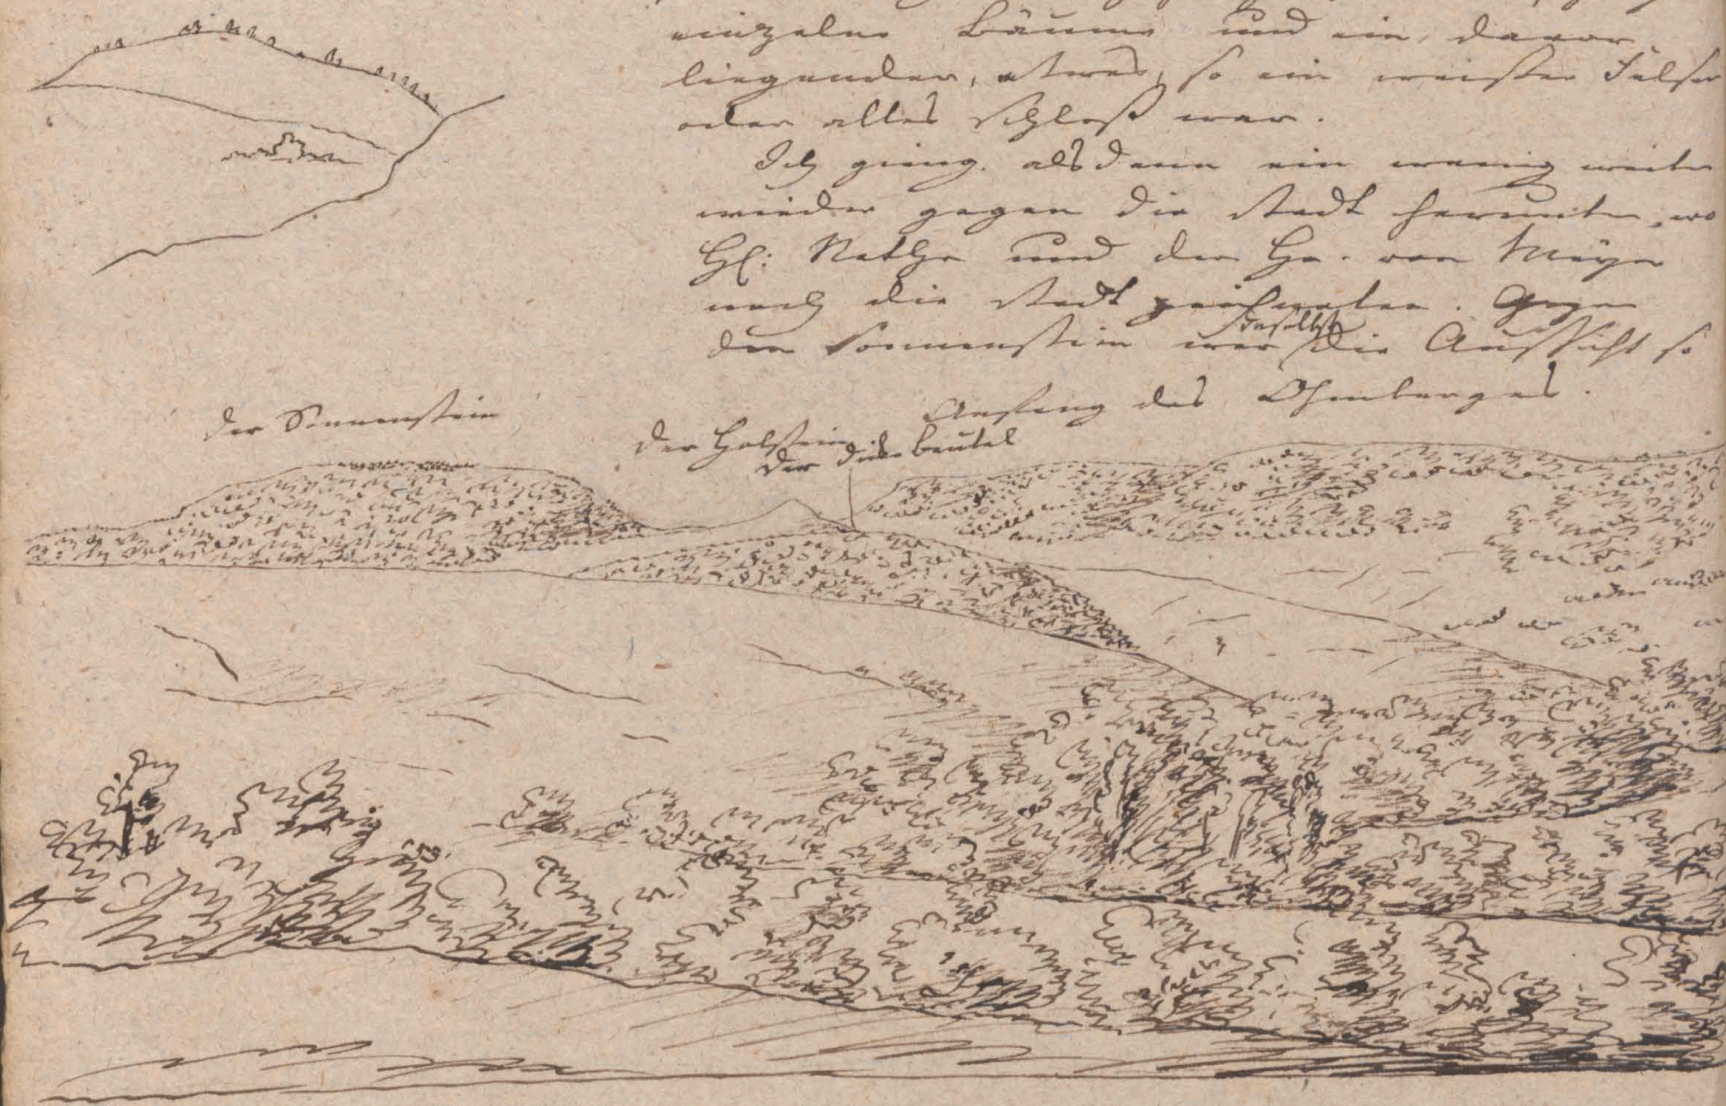 einzelne Bäume und ein davor
liegender, etwas, so ein weißer Felsen
oder altes Schloß war.
Ich gieng alsdann ein wenig weiter
wieder gegen die Stadt herunter, wo
H: Nathe und der H. von Meyer
noch die Stadt zeichneten. Gegen
den Sonnenstein war daselbst die Aussicht so
Anfang des Ohmberges.
der Sonnenstein
der Holstein
der beutel